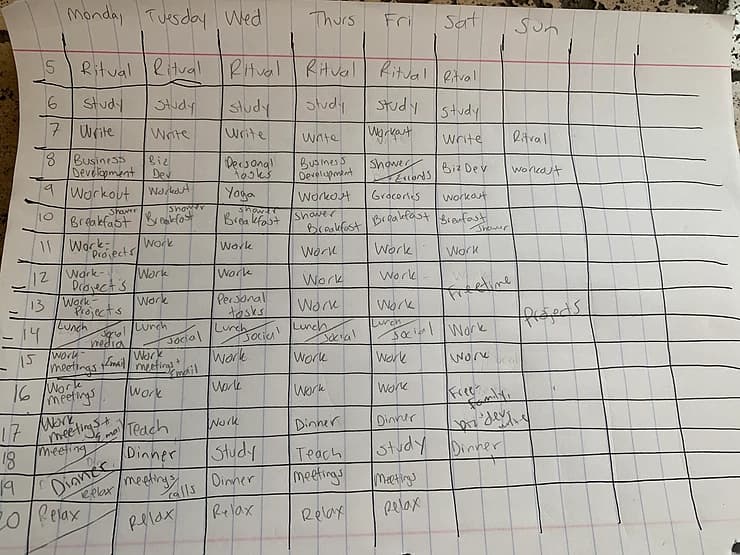 Monday Tuesday Wed Thurs Fri Sat Sun
5 Ritual Ritual Ritual Ritual Ritual Ritual
6 Study Study Study Study Study Study
7 Write Write Write Write Workout Write Ritual
8 Business Development Biz Dev Personal tasks Business Development Shower/Errands Biz Dev workout
9 Workout Workout Yoga Workout Groceries workout
10 Breakfast Shower Breakfast Shower Breakfast Shower Shower Breakfast Breakfast Breakfast Shower
11 Work-Projects Work Work Work Work Work
12 Work-Projects Work Work Work Work Freetime
13 Work-Projects Work Personal tasks Work Work Projects
14 Lunch/Social media Lunch/Social Lunch/Social Lunch/Social Lunch/Social Work
15 Work-meetings + Email Work meetings + Email Work Work Work Work
16 Work meetings Work Work Work Work Free- family,
17 Work meetings + Email Teach Work Dinner Dinner
18 Meeting Dinner Study Teach Study Dinner
19 Dinner/Relax meetings/calls Dinner Meetings Meetings
20 Relax Relax Relax Relax Relax